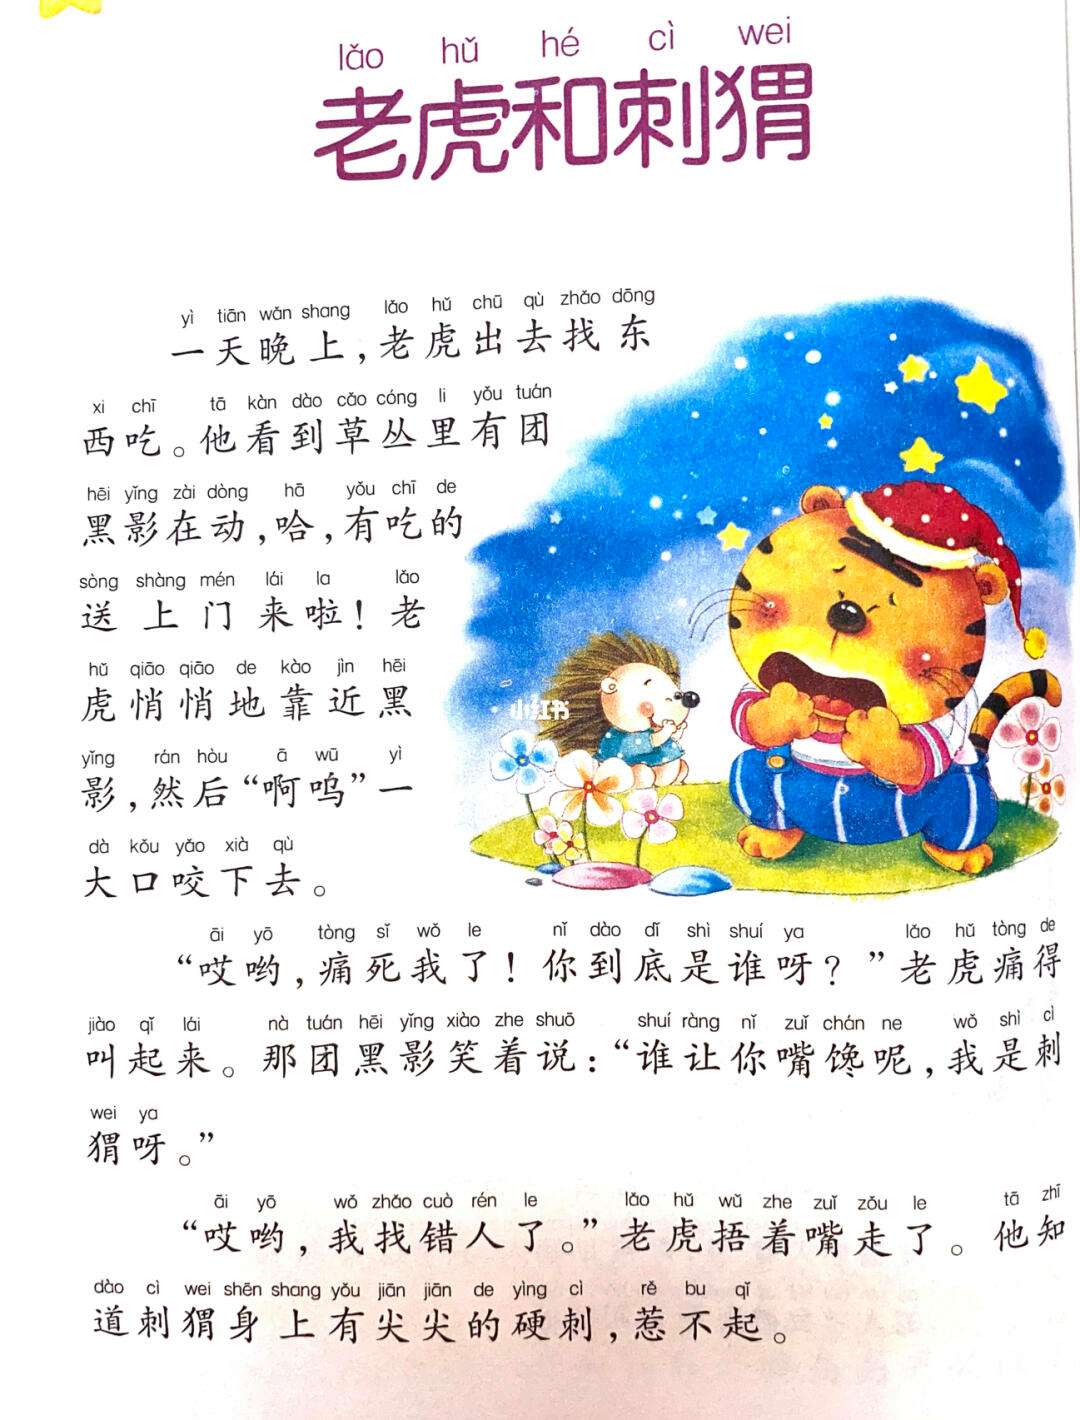 lǎo hǔ hé cì wei
老虎和刺猬
yì tiān wǎn shang lǎo hǔ chū qù zhǎo dōng
一天晚上，老虎出去找东
xi chī tā kàn dào cǎo cóng li yǒu tuán
西吃。他看到草丛里有团
hēi yǐng zài dòng hā yǒu chī de
黑影在动，哈，有吃的
sòng shàng mén lái la lǎo
送上门来啦！老
hǔ qiāo qiāo de kào jìn hēi
虎悄悄地靠近黑
yǐng rán hòu ā wū yì
影，然后“啊呜”一
dà kǒu yǎo xià qù
大口咬下去。
小红书
āi yō tòng sǐ wǒ le nǐ dào dǐ shì shuí ya lǎo hǔ tòng de
“哎哟，痛死我了！你到底是谁呀？”老虎痛得
jiào qǐ lái nà tuán hēi yǐng xiào zhe shuō shuí ràng nǐ zuǐ chán ne wǒ shì cì
叫起来。那团黑影笑着说：“谁让你嘴馋呢，我是刺
wei ya
猬呀。”
āi yō wǒ zhǎo cuò rén le lǎo hǔ wǔ zhe zuǐ zǒu le tā zhī
“哎哟，我找错人了。”老虎捂着嘴走了。他知
dào cì wei shēn shang yǒu jiān jiān de yìng cì rě bu qǐ
道刺猬身上有尖尖的硬刺，惹不起。